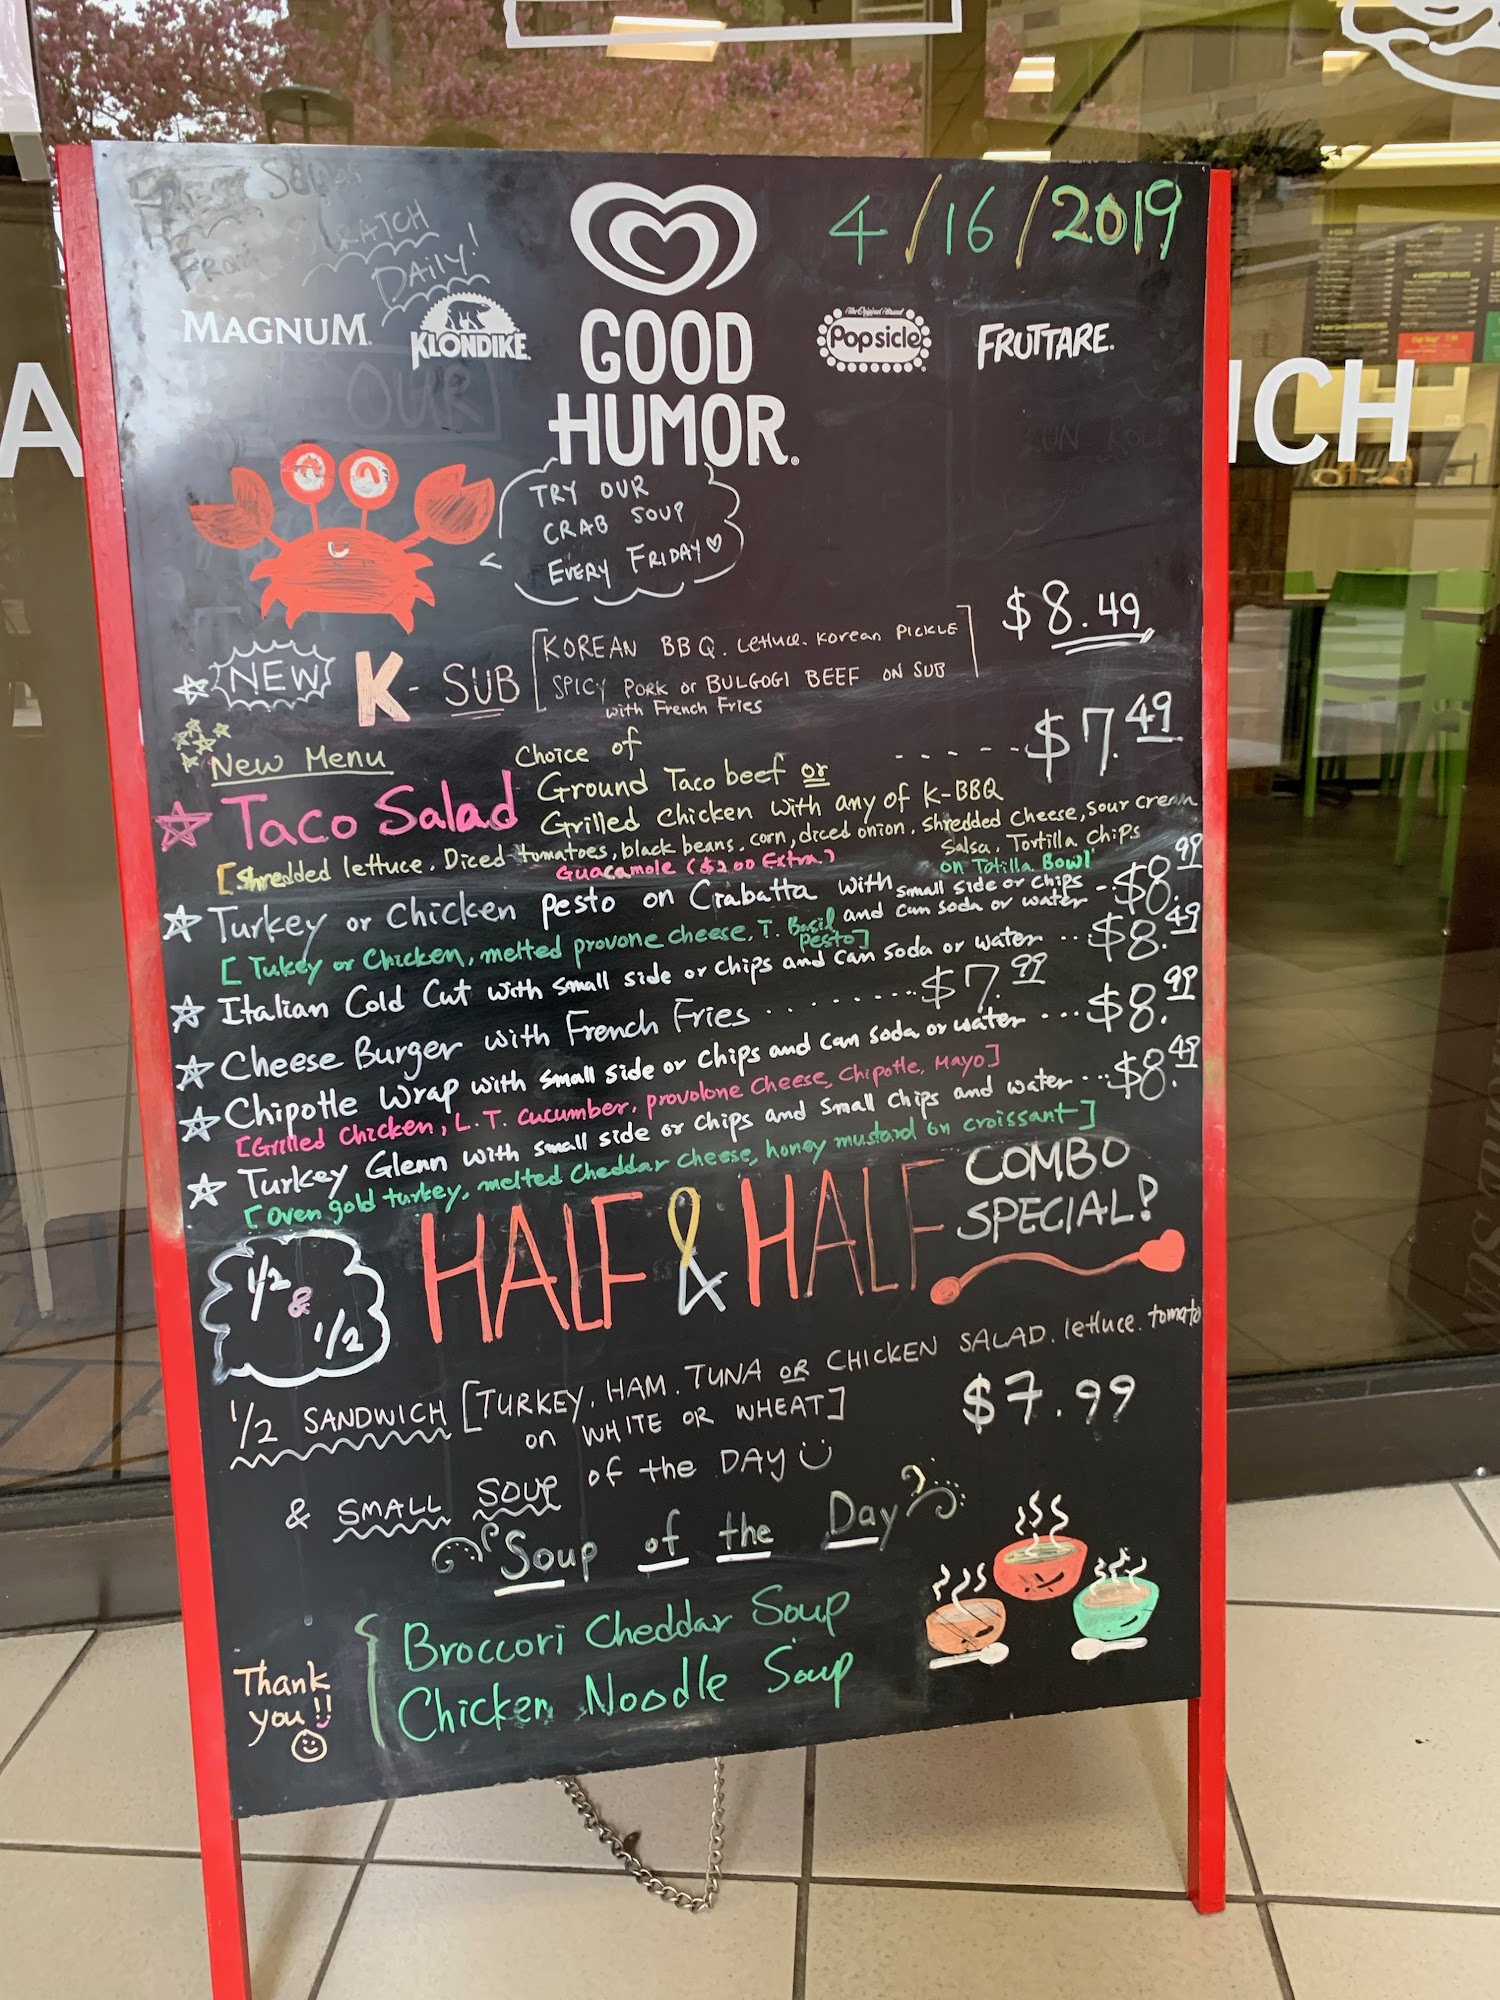 SCRATCH
DAILY!
4/16/2019
MAGNUM.
KLONDIKE.
GOOD
HUMOR.
The Original Brand
Popsicle
FRUTTARE.
OUR
A
CH
TRY OUR
CRAB SOUP
EVERY FRIDAY
NEW K-SUB [KOREAN BBQ. Lettuce. Korean PICKLE $8.49
SPICY PORK or BULGOGI BEEF ON SUB]
with French Fries
New Menu
Taco Salad Choice of
Ground Taco beef or .....$7.49
Grilled Chicken with any of K-BBQ
[Shredded lettuce. Diced tomatoes, black beans. corn, diced onion. Shredded Cheese, sour cream
Salsa, Tortilla Chips
Guacamole ($2.00 Extra.) on Totilla Bowl
Turkey or Chicken Pesto on Ciabatta with small side or chips ..$8.99
and can soda or water
[Tukey or Chicken, melted provone cheese, T. Basil
Pesto]
Italian Cold Cut with small side or chips and can soda or water ..$8.49
Cheese Burger with French Fries ........$7.99
Chipotle Wrap with small side or chips and can soda or water ...$8.99
[Grilled Chicken, L.T. cucumber, provolone cheese, Chipotle, Mayo]
Turkey Glenn with small side or chips and small chips and water ...$8.49
[Oven gold turkey, melted cheddar cheese, honey mustard on croissant]
1/2 & 1/2
HALF & HALF COMBO
SPECIAL!
1/2 SANDWICH [TURKEY. HAM. TUNA OR CHICKEN SALAD. lettuce. tomato
on WHITE OR WHEAT] $7.99
& SMALL SOUP of the DAY
Soup of the Day
Broccori Cheddar Soup
Chicken Noodle Soup
Thank
you!!